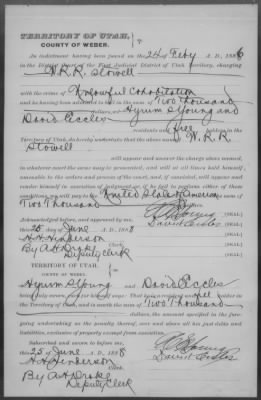 TERRITORY OF UTAH,
COUNTY OF WEBER.
An indictment having been found on the 24 of Feby A. D., 1886
in the District Court of the First Judicial District of Utah Territory, charging
W. R. R. Stowell
with the crime of Unlawful Cohabitation
and he having been admitted to bail in the sum of Two Thousand
Hyrum S Young and
David Eccles
residents and
Territory of Utah, do hereby undertake that the above named W. R. R.
Stowell
will appear and answer the charge above named,
in whatever court the same may be presented, and will at all times hold himself
amenable to the orders and process of the court, and, if convicted, will appear and
render himself in execution of judgment or, if he fail to perform either of these
conditions, we will pay to the United States of America
Two Thousand
Acknowledged before, and approved by me,
this 25 day of June A. D. 1888
H. H. Henderson
Clerk
By A. H. Drake
Deputy Clerk
David Eccles
[SEAL]
[SEAL]
[SEAL]
[SEAL]
TERRITORY OF UTAH,
COUNTY OF WEBER.
Hyrum S Young and David Eccles
being duly sworn, each for himself says: That he is a resident and
Territory of Utah, and is worth the sum of Two Thousand
dollars, the amount specified in the fore-
going undertaking as the penalty thereof, over and above all his just debts and
liabilities, exclusive of property exempt from execution.
Subscribed and sworn to before me
this 25 of June A. D. 1888
H. H. Henderson
Clerk
By A. H. Drake
Deputy Clerk
David Eccles